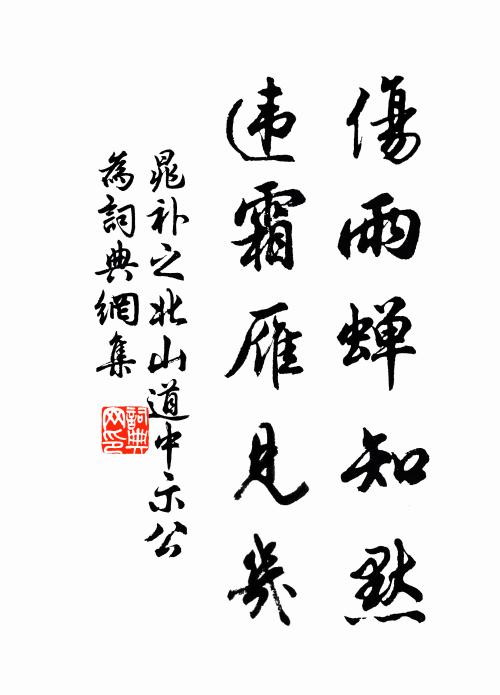 傷雨蝉知默
违霜雁見幾
晁补之北山道中示公
為詞典網集
詞典网印